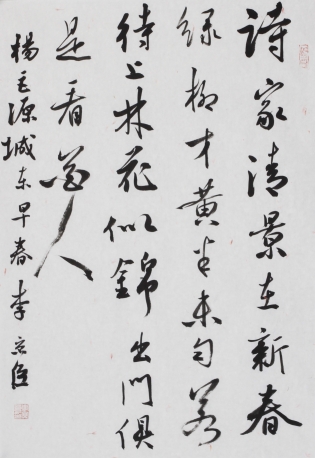 詩家清景在新春
绿柳才黄半未匀若
待上林花似錦出門俱
是看花人
楊巨源城东早春李